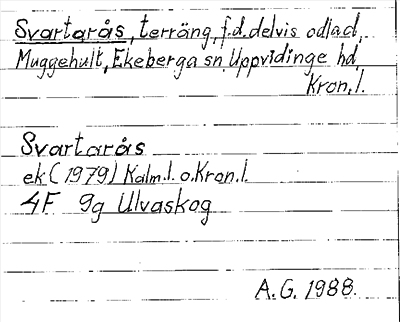 Svartarås, terräng, f.d. delvis odlad,
Muggehult, Ekeberga sn, Uppvidinge hd,
Kron.l.
Svartarås
ek (1979) Kalm.l. o. Kron.l.
4F 9g Ulvaskog
A.G. 1988.